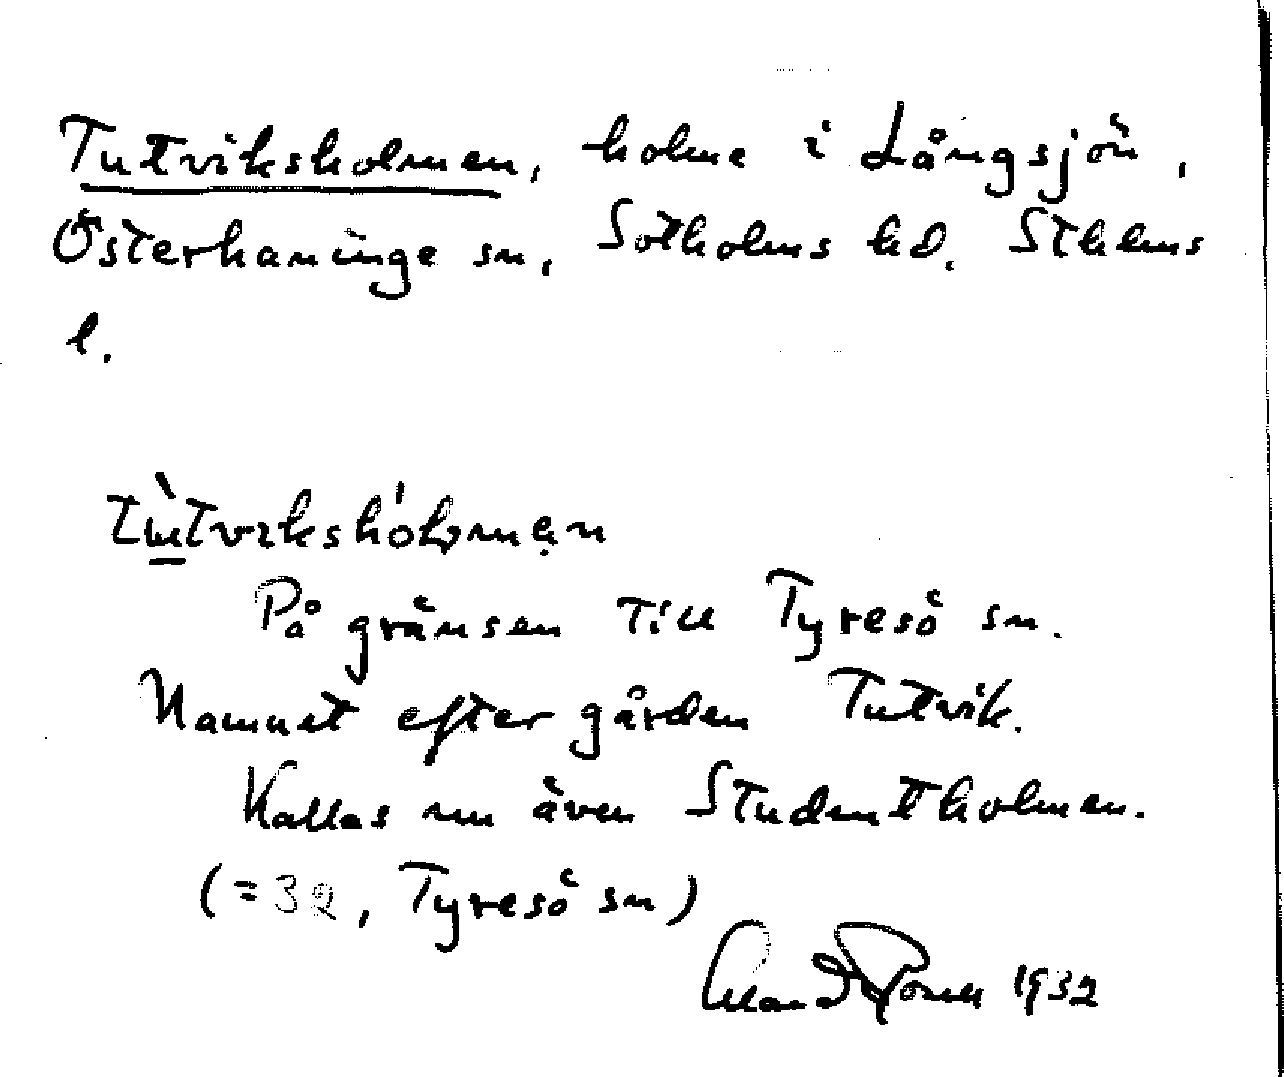 Tutviksholmen, holme i Långsjön,
Österhaninge sn, Sotholms hd. Sthlms
l.
På gränsen till Tyresö sn.
Namnet efter gården Tutvik.
Kallas nu även Studentholmen.
(=32, Tyresö sn)
1932